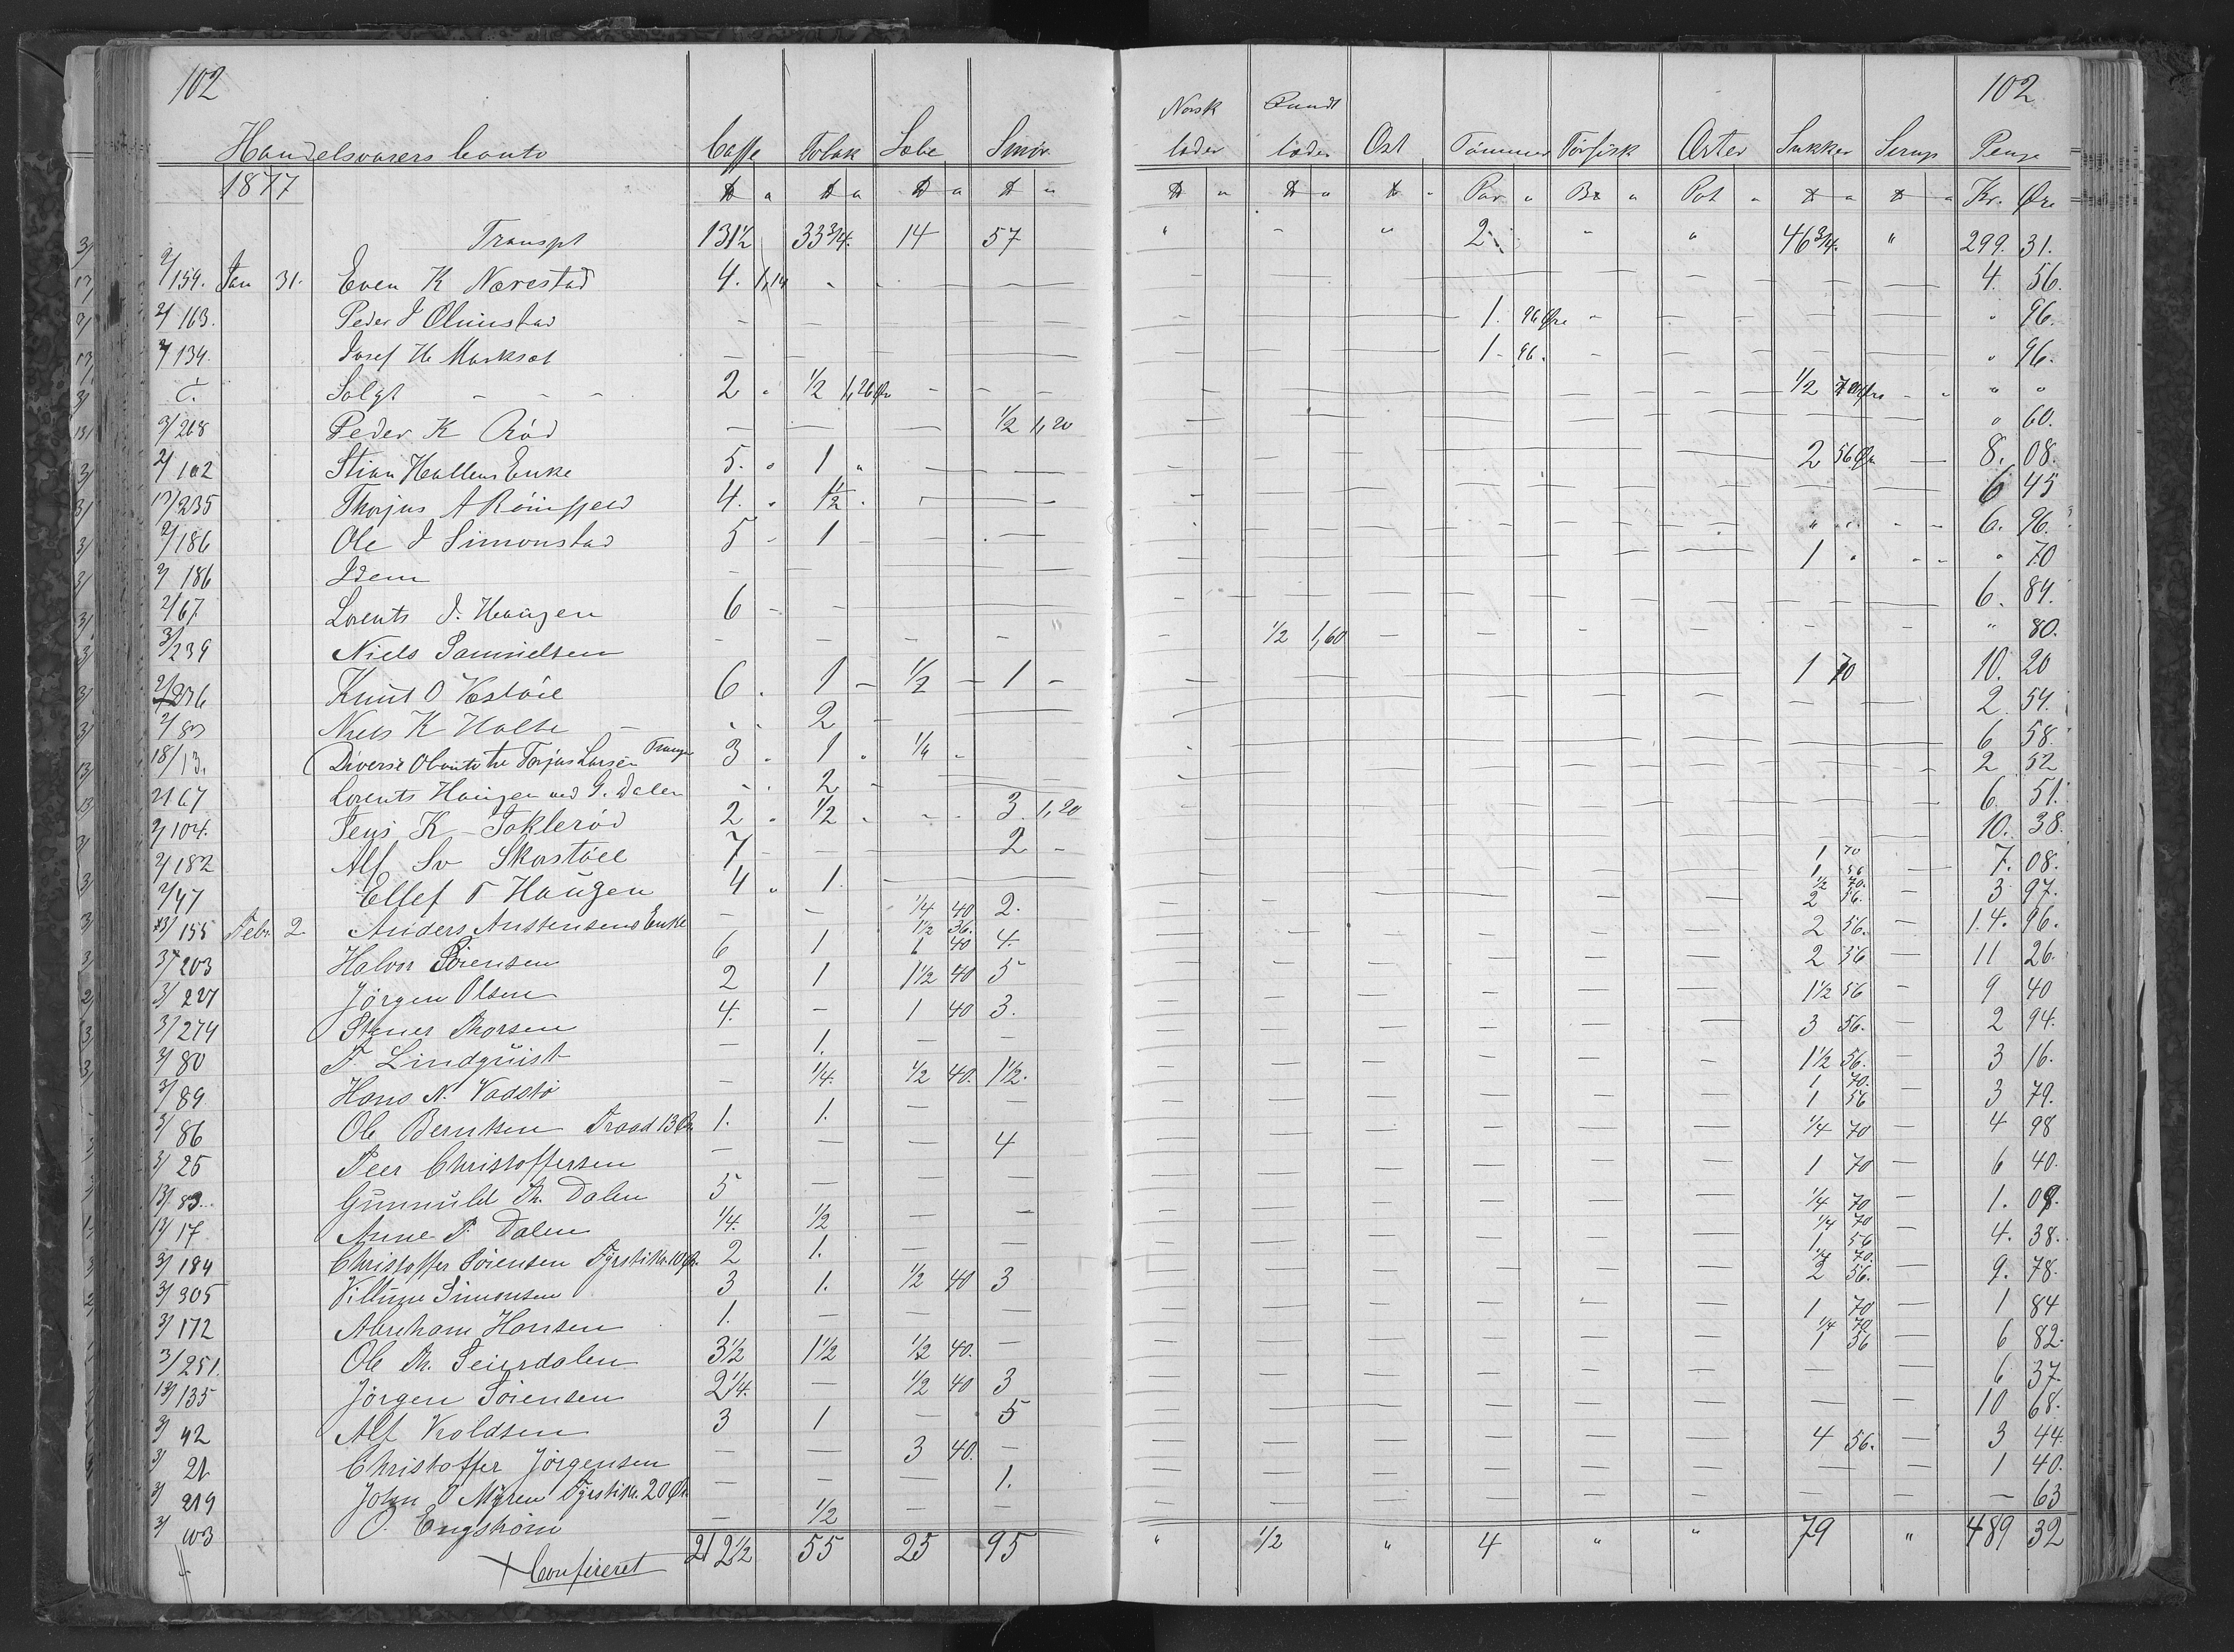 102 102
Norsk Rundt
Handelsvarers Conto Caffe Tobak Sæbe Smør læder læder Ost Tømmer Tørfisk Ærter Sukker Sirup Penge
1877 ℔ " ℔ " ℔ " ℔ " ℔ " ℔ " ℔ " Par " " Pot " ℔ " ℔ " Kr. Øre
Transpt 131½ 33¾. 14 57 " - " 2 " " 46¾. " 299. 31.
2/159. Jan 31. Even K Nærestad 4. 1,14 4. 56.
2/163. Peder J Olimstad 1. 96 Øre " 96.
134. Josef H. 1 - 96. " 96.
C. Solgt - - - 2 " ½ 1,26 Ør ½ 70 Øre " "
2/268 Peder K Röd ½ 1,20 " 60.
2/102 Stian Hallens Enke 5. " 1 " 2 56 Ør 8. 08.
13/235 Thorjus A Rönifjeld 4. " 1½ . 6 45
2/186 Ole J Simonstad 5 - 1 6. 96.
2/186 Idem 1 " " 70
2/67 Lorents J. Haugen 6 6. 84.
3/239 Niels Samuelsen ½ 1,60 " 80.
2/236 Knut O Væstöil 6 . 1 - ½ - 1 - 1 70 10. 20
2/83 Niels K Holte 2 2 54.
18/13. Diverse Cbonto tre Torjus Larsen 3 . 1 . ¼ . 6 58.
2/67 Lorents Haugen ved G. Dalen 2 2 52
2/104. Jens K Tokleröd 2 . ½ 3. 1,20 6 51.
2/182 Alf Sv Skarstöll 7 2 - 10. 38.
2/47 Ellef T Haugen 4 " 1. 1 70 1 56 7. 08.
13/155 Febr. 2. Anders Austensens Enke ¼ 40 2. ½ 70. 2 56. 3 97.
3/203 Halvor Sörensen 6 1 ½ 36. 1 40 4. 2 56. 14. 96.
3/227 Jörgen Olsen 2 1 1½ 40 5 2 56 11 26.
3/274 Stener Thorsen 4. - 1 40 3. 1½ 56 9 40
3/80 F. Lindquist 1. 3 56. 2 94.
3/89 Hans N. Vadstö ¼. ½ 40. 1½. 1½ 56. 3 16.
3/86 Ole Berntsen Traad 13 Ør. 1. 1. 1 70. 1 56 3 79.
3/25 Peer Christoffersen 4 ¼ 70 4 98
13/83. Gunnuld Th. Dalen 5 1 70 6 40.
13/17 Anne P. Dalen ¼. ½ ¼ 70 1. 08.
3/184 Christoffer Sörensen Fyrstik. 10 Ør. 2 1. ¼ 70 1 56 4. 38.
3/305 Villum Simonsen 3 1. ½ 40 3 ¼ 70. 2 56. 9. 78.
3/172 Abraham Hansen 1. 1 70 1 84
3/251. Ole Th. Seiersdalen 3½ 1½ ½ 40. - ¼ 70 1 56 6 82.
13/135 Jörgen Sörensen 2¼. - ½ 40 3 6 37.
3/42 Alf Kroldsen 3 1 - 5 10 68.
3/21 Christoffer Jörgensen 3 40. - 4 56. 3 44.
3/219 John O Myren Fyrstik. 20 Ør. 1. 1 40.
3/103 O. Engström ½ - 63
+ Confereret 212½ 55 25 95 " ½ " 4 " " 79 " 489 32